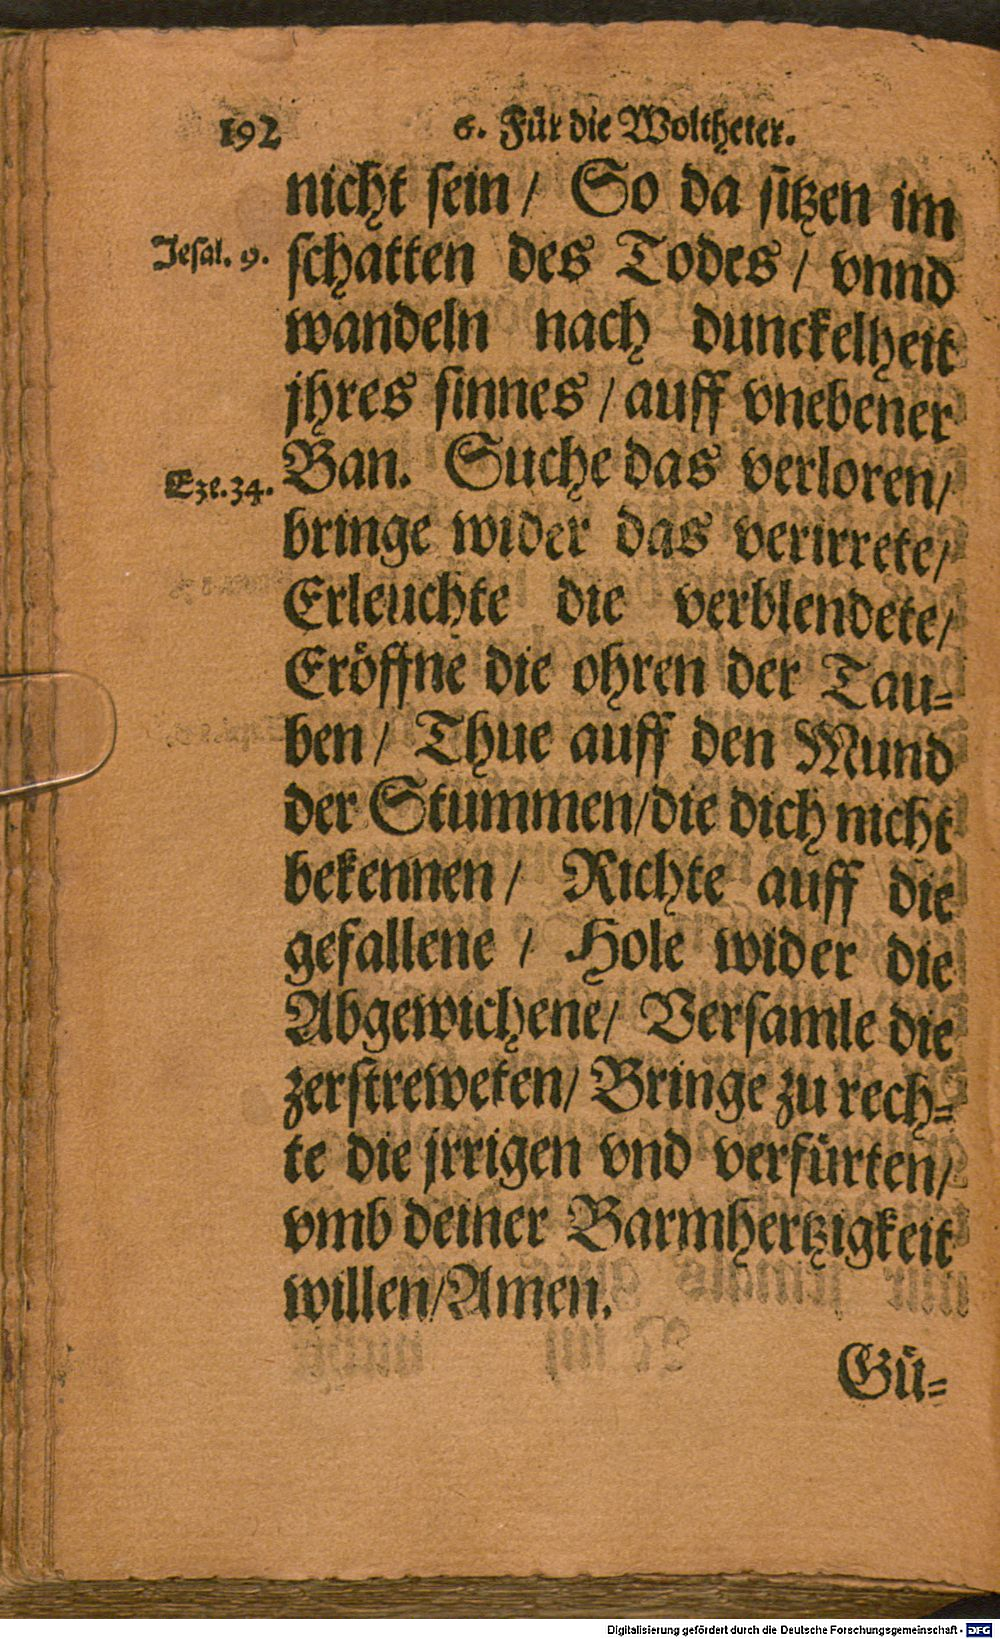 192 6. Für die Woltheter.
nicht sein / So da sitzen im
Jesai. 9. schatten des Todes / vnnd
wandeln nach dunckelheit
jhres sinnes / auff vnebener
Eze. 34. Ban. Suche das verloren /
bringe wider das verirrete /
Erleuchte die verblendete /
Eröffne die ohren der Tau-
ben / Thue auff den Mund
der Stummen / die dich nicht
bekennen / Richte auff die
gefallene / Hole wider die
Abgewichene / Versamle die
zerstreweten / Bringe zu rech-
te die jrrigen vnd verfürten /
vmb deiner Barmhertzigkeit
willen / Amen.
Gü-
Digitalisierung gefördert durch die Deutsche Forschungsgemeinschaft - DFG